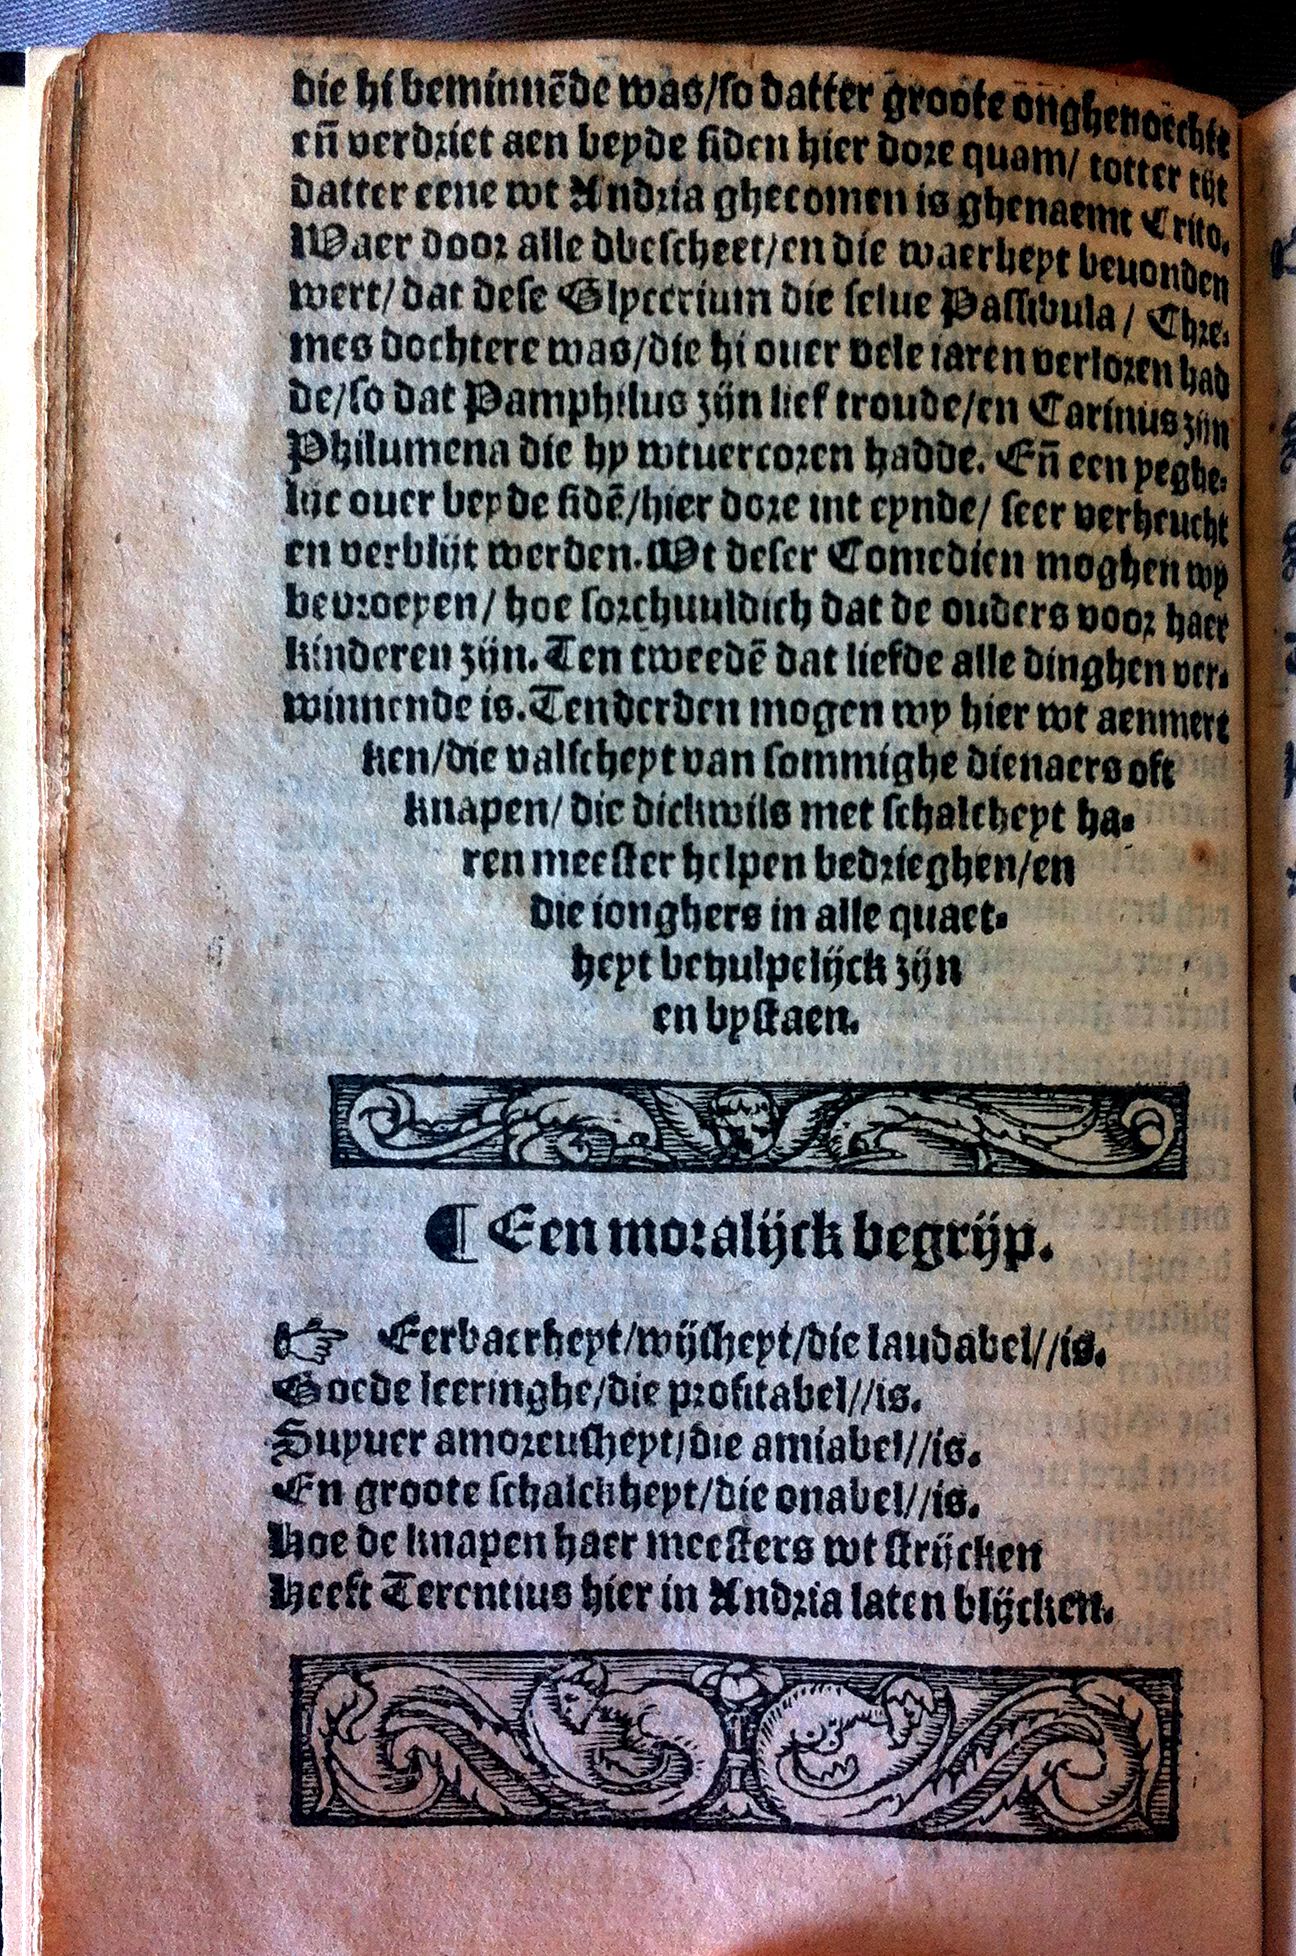 die hi beminnēde was/so datter groote onghenoechte
eñ verdriet aen beyde siden hier dore quam/ totter tijt
datter eene wt Andria ghecomen is ghenaemt Crito.
Waer door alle dbescheet/en die waerheyt beuonden
wert/ dat dese Glycerium die selue Passibula / Chre-
mes dochtere was/die hi ouer vele iaren verloren had
de/so dat Pamphilus zijn lief troude/en Carinus zijn
Philumena die hy wtuercoren hadde. Eñ een yeghe-
lijc ouer beyde sidē/hier dore int eynde/ seer verheucht
en verblijt werden. Wt deser Comedien moghen wy
bevroeyen/ hoe sorchuuldich dat de ouders voor haer
kinderen zijn. Ten tweedē dat liefde alle dinghen ver-
winnende is. Tenderden mogen wy hier wt aenmerc
ken/die valscheyt van sommighe dienaers oft
knapen/ die dickwils met schalcheyt ha-
ren meester helpen bedrieghen/en
die ionghers in alle quaet-
heyt behulpelijck zijn
en bystaen.
¶ Een moralijck begrijp.
☞ Eerbaerheyt/wijsheyt/die laudabel//is.
Goede leeringhe/die profitabel//is.
Suyuer amoreusheyt/die amiabel//is.
En groote schalckheyt/die onabel//is.
Hoe de knapen haer meesters wt strijcken
Heeft Terentius hier in Andria laten blijcken.